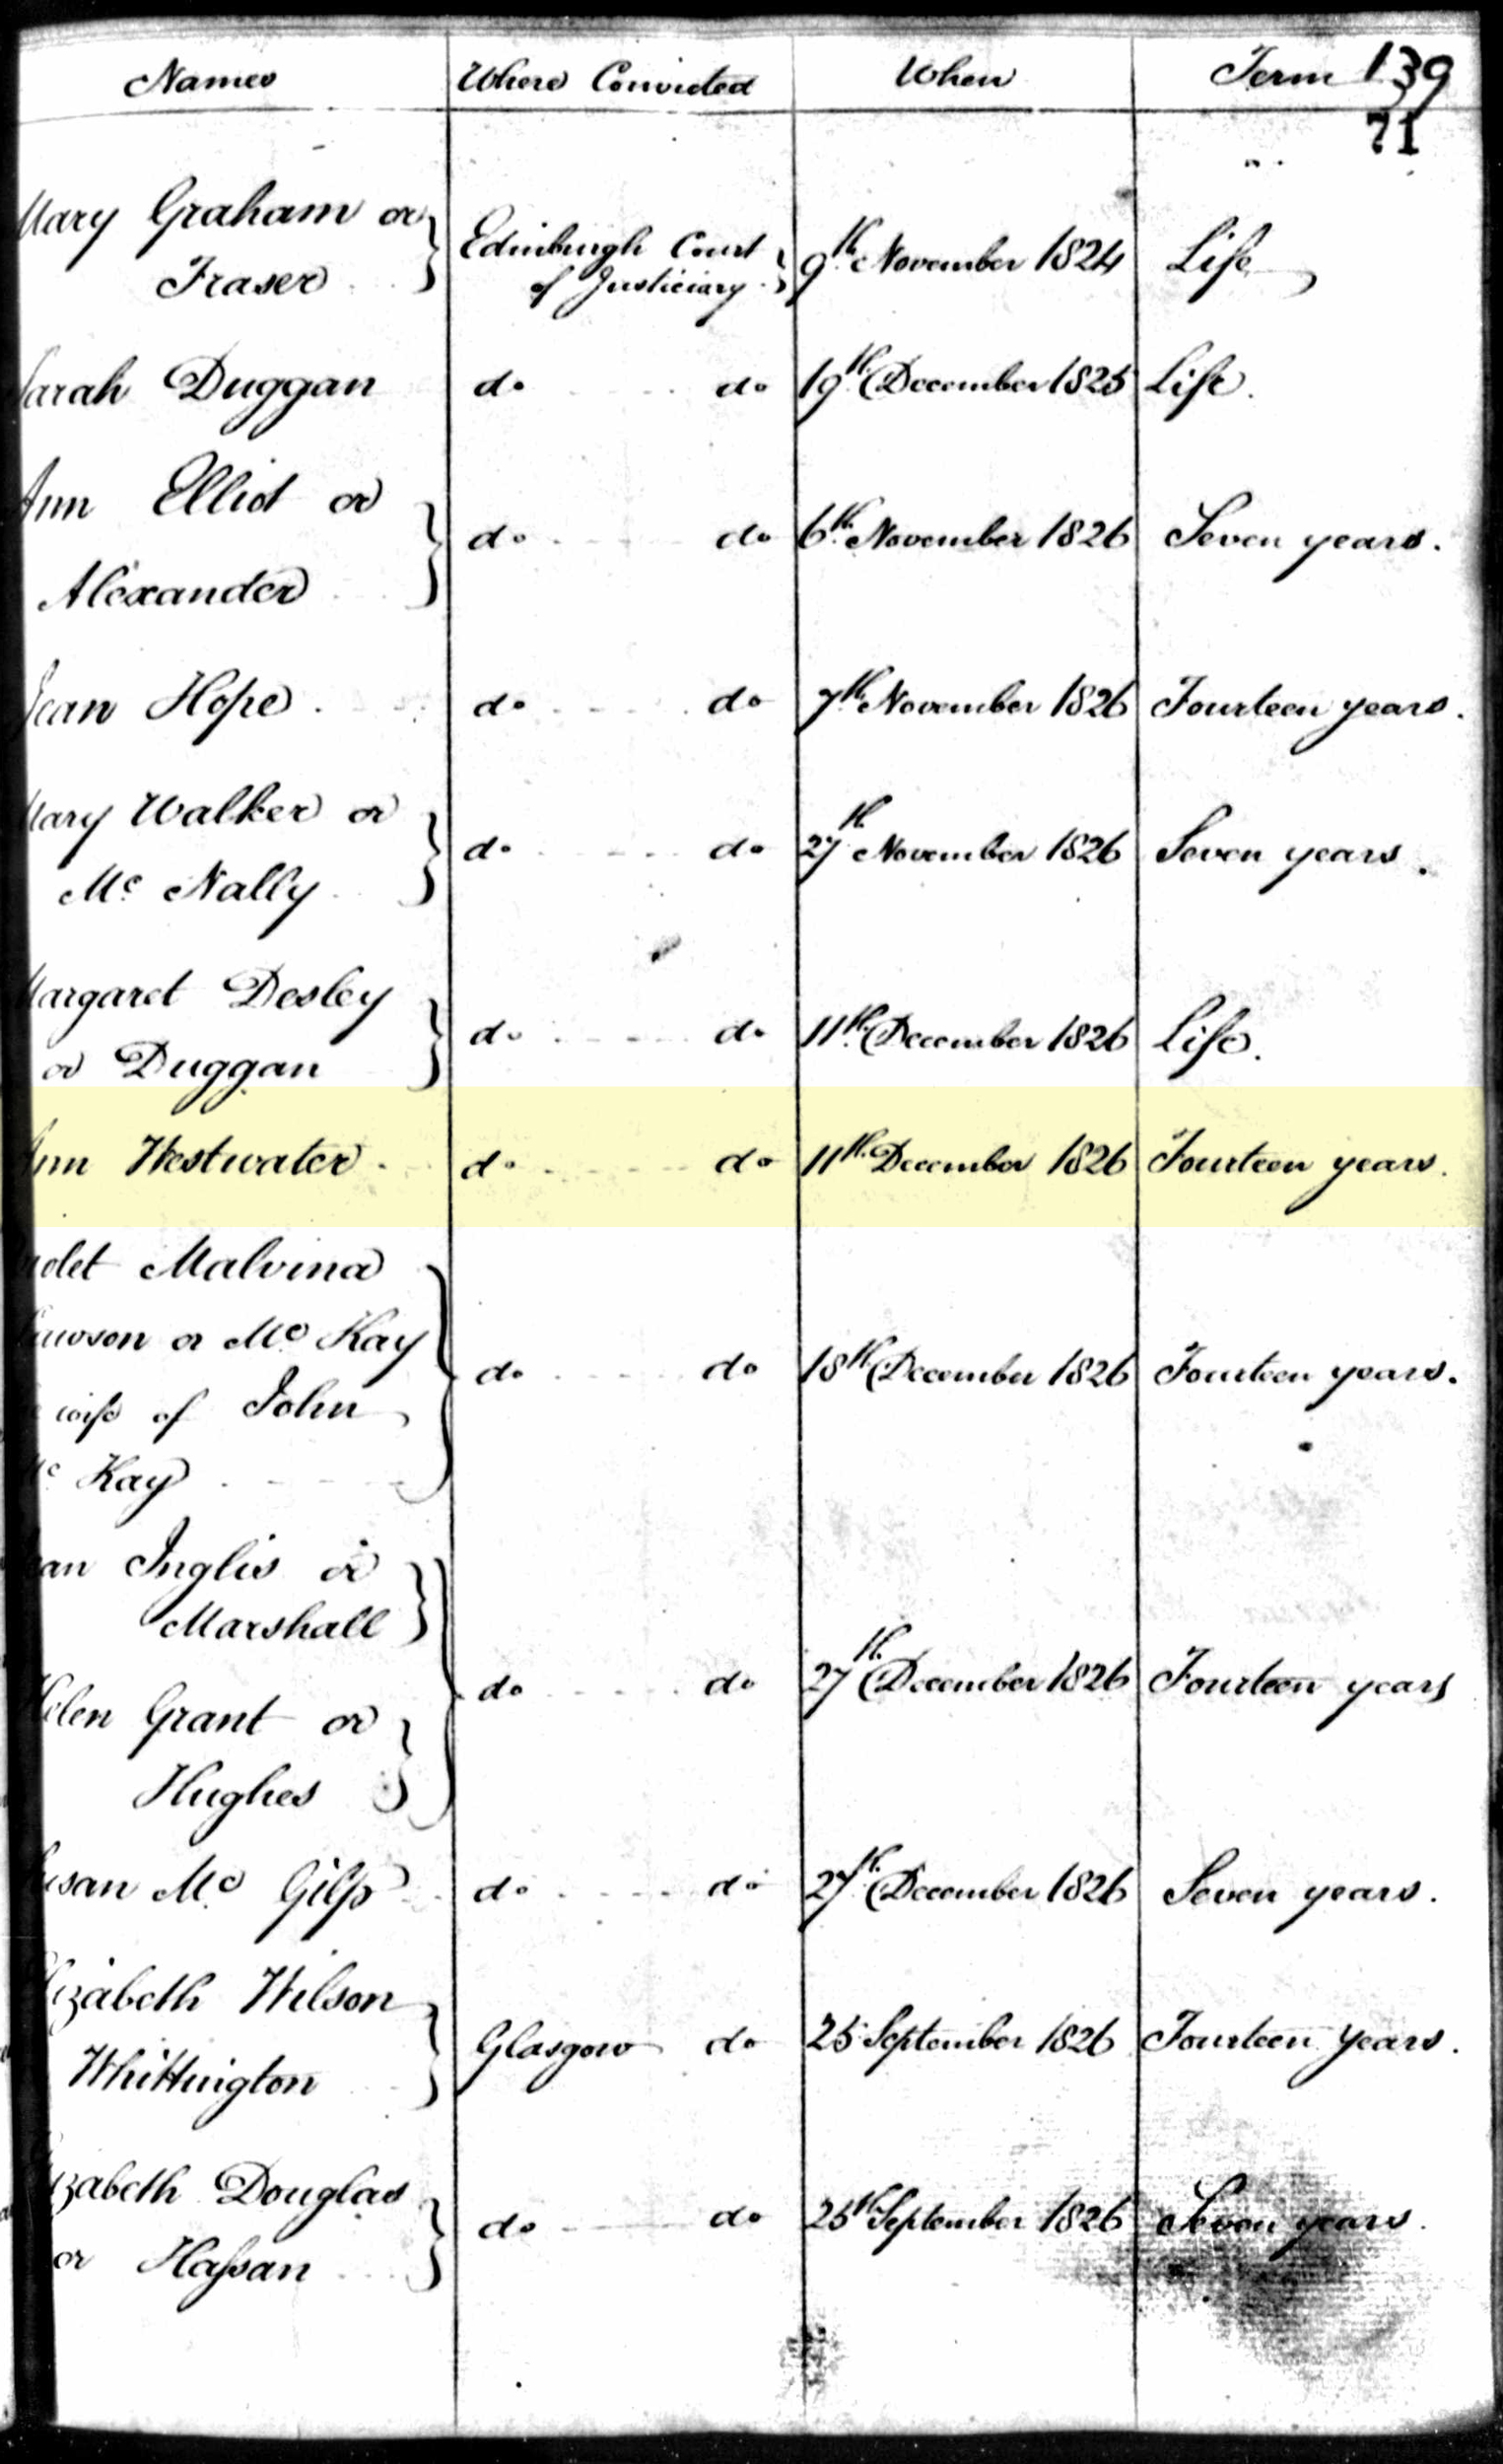 Names Where Convicted When Term 139
71
Mary Graham or
Fraser
Edinburgh Court
of Justiciary
9th November 1824 Life
Sarah Duggan do do 19th December 1825 Life.
Ann Elliot or
Alexander
do do 6th November 1826 Seven years.
Jean Hope do do 7th November 1826 Fourteen years.
Mary Walker or
Mc Nally
do do 27th November 1826 Seven years.
Margaret Desley
or Duggan
do do 11th December 1826 Life.
Ann Westwater do do 11th December 1826 Fourteen years.
Malvina
or Mc Kay
wife of John
Mc Kay
do do 18th December 1826 Fourteen years.
Inglis or
Marshall
Helen Grant or
Hughes
do do 27th December 1826 Fourteen years
Susan Mc Gilp do do 27th December 1826 Seven years.
Elizabeth Wilson
Whittington
Glasgow do 25 September 1826 Fourteen Years.
Elizabeth Douglas
or Hassan
do do 25th September 1826 Seven years.